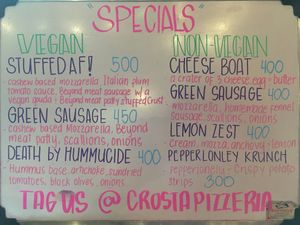 "SPECIALS"
VEGAN
STUFFED AF! 500
- cashew based mozzarella, Italian plum
tomato sauce, Beyond meat sausage w/ a
vegan gouda + Beyond meat patty stuffed Crust
GREEN SAUSAGE 450
- cashew based Mozzarella, Beyond
meat patty, scallions, onions
DEATH BY HUMMUCIDE 400
- Hummus base, artichoke, sundried
tomatoes, black olives, onions
NON-VEGAN
CHEESE BOAT 400
- a crater of 3 cheese, egg + butter
GREEN SAUSAGE 400
- mozzarella, homemade fennel
sausage, scallions, onions
LEMON ZEST 400
- Cream, mozza, anchovy + lemon
PEPPERLONLEY KRUNCH 400
- Pepperlonely + Crispy potato
strips 300
TAG US @ CROSTAPIZZERIA